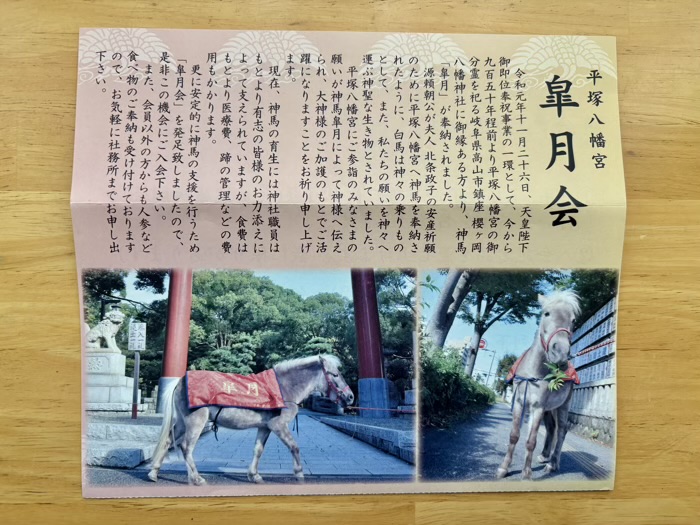 平塚八幡宮
皐月会
令和元年十一月二十六日、天皇陛下
御即位奉祝事業の一環として、今から
九百五十年程前より平塚八幡宮の御
分霊を祀る岐阜県高山市鎮座 櫻ヶ岡
八幡神社に御縁ある方より、神馬
「皐月」が奉納されました。
源頼朝公が夫人 北条政子の安産祈願
のために平塚八幡宮へ神馬を奉納さ
れたように、白馬は神々の乗りもの
として、また、私たちの願いを神々へ
運ぶ神聖な生き物とされていました。
平塚八幡宮にご参詣のみなさまの
願いが神馬皐月によって神様へ伝え
られ、大神様のご加護のもとでご活
躍になりますことをお祈り申し上げ
ます。
現在、神馬の育生には神社職員は
もとより有志の皆様のお力添えに
よって支えられていますが、食費は
もとより医療費、蹄の管理などの費
用もかかります。
更に安定的に神馬の支援を行うため
「皐月会」を発足致しましたので、
是非この機会にご入会下さい。
また、会員以外の方からも人参など
食べ物のご奉納も受け付けております
ので、お気軽に社務所までお申し出
下さい。
皐月